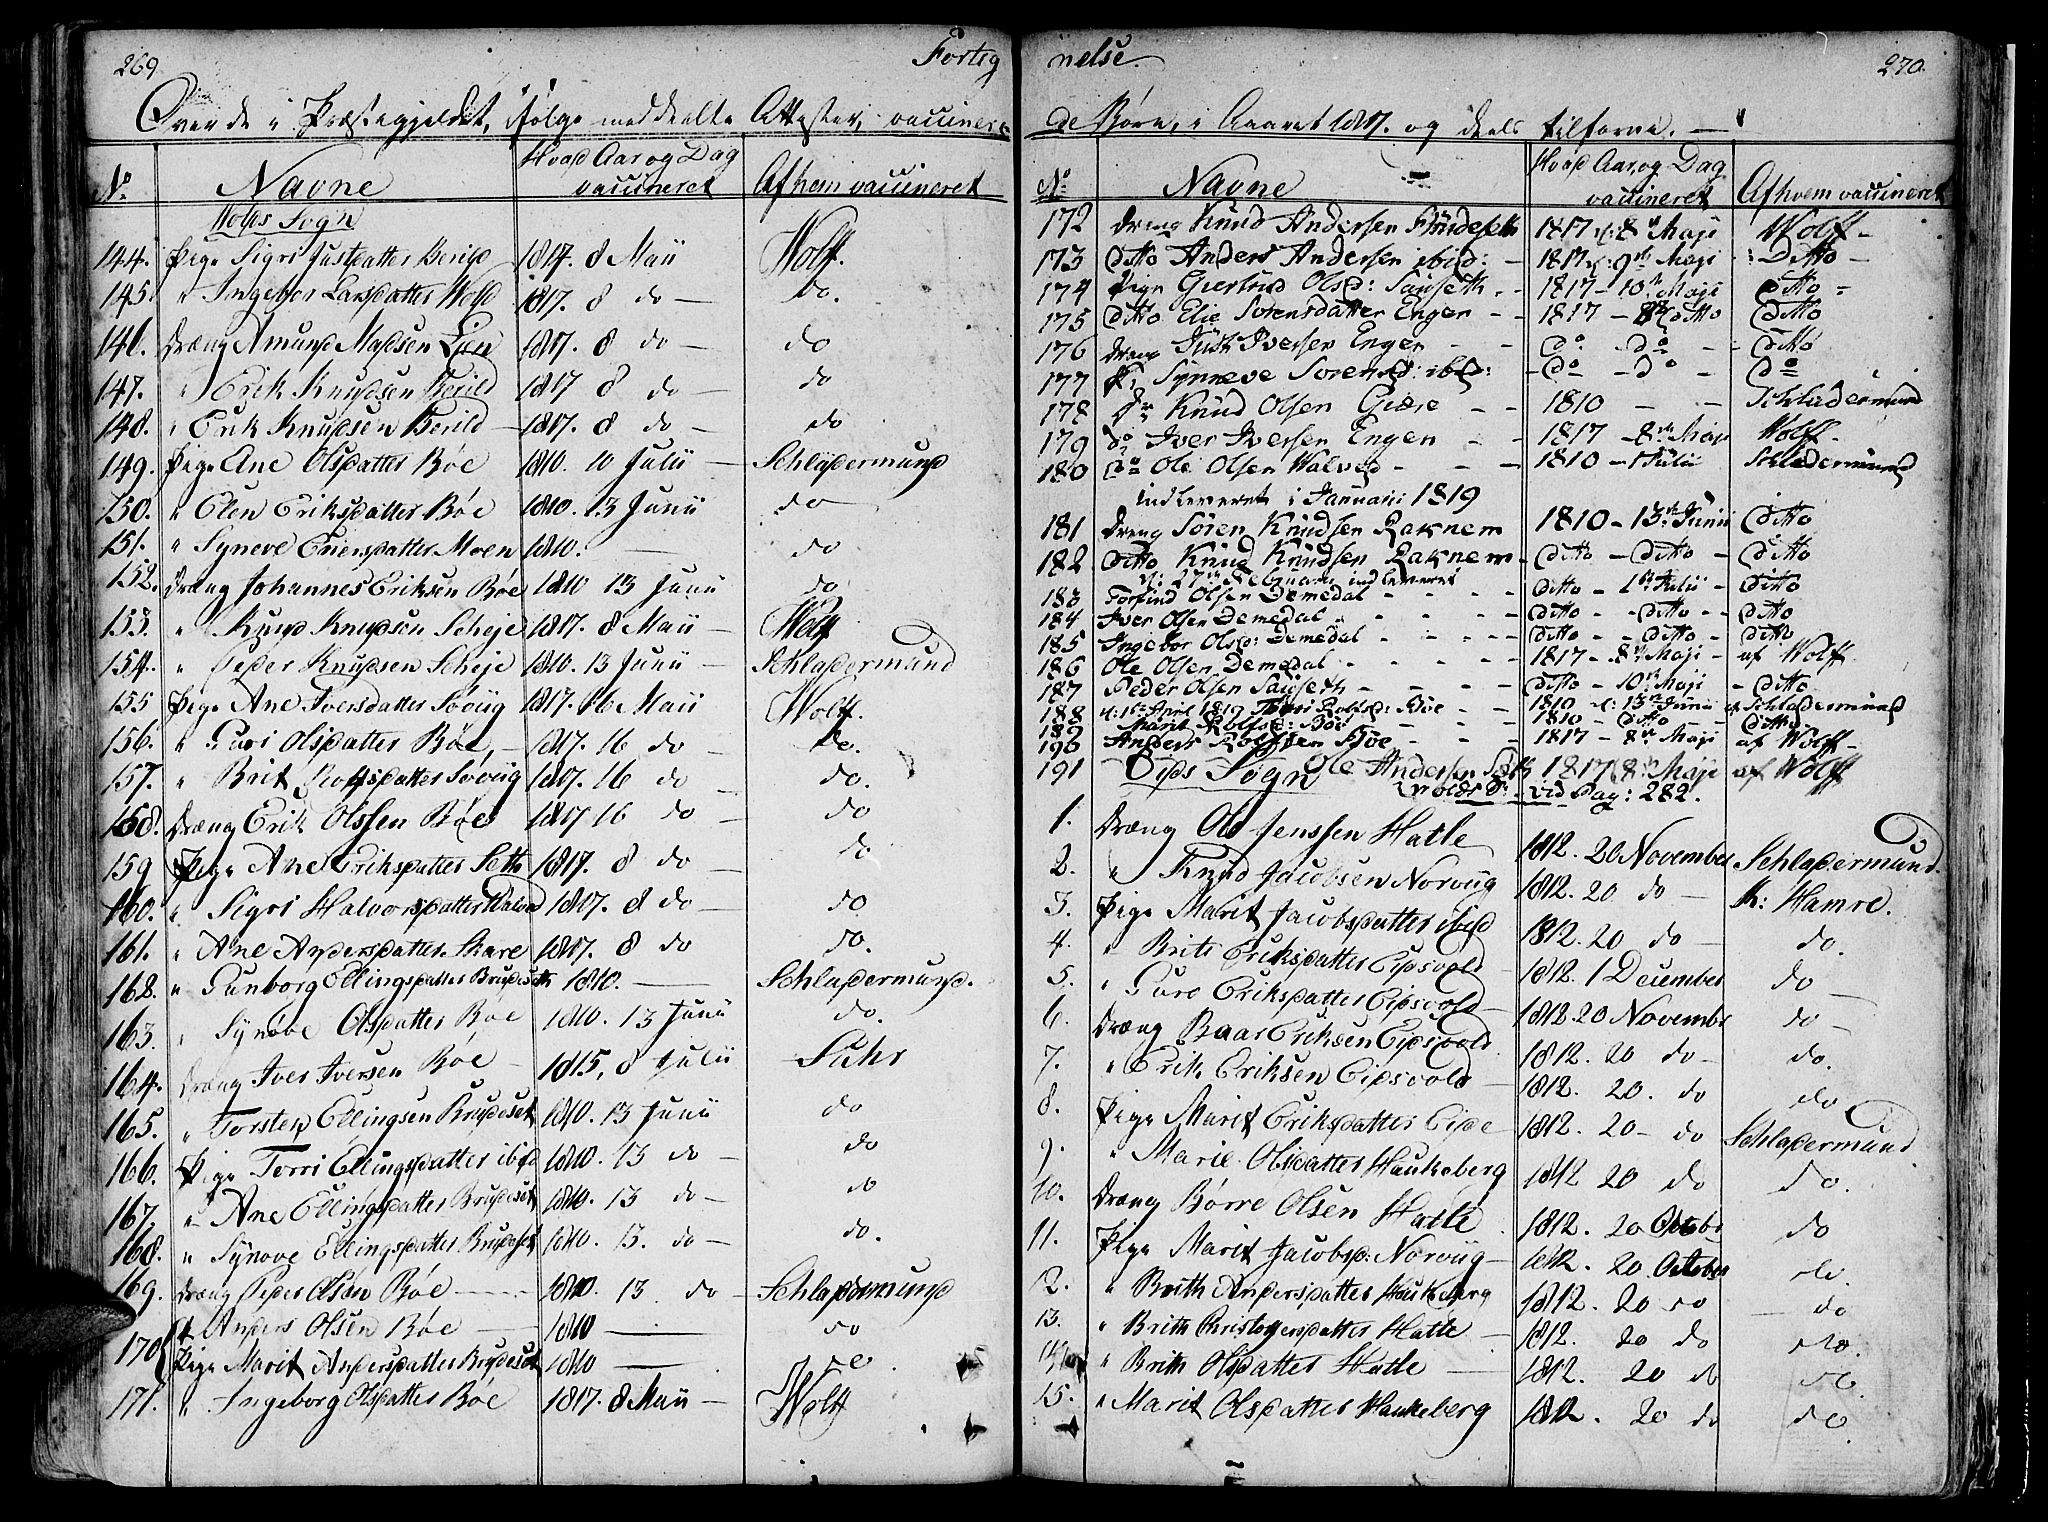 269
Forteg
Over de i Præstegjeldet, ifølge meddeelte Attester, vaccinere
No
Navne
Hvad Aar og Dag vaccineret
Af hvem vaccineret
Wolds Sogn
144. Pige Sigri Justdatter Berild 1817. 8 Maii Wolff.
145. " Ingebor Larsdatter Wold 1817. 8 do — do.
146. Dræng Amund Madsen Lien 1817. 8 do — do
147. " Erik Knudsen Berild 1817 8 do — do
148. " Erik Knudsen Berild — 1817. 8 do — do
149. Pige Ane Olsdatter Bøe 1810. 10 Julii — Schladermund
150. " Elen Eriksdatter Bøe 1810. 13 Junii do —
151. " Syneve Eriersdatter Moen 1810. — do
152. Dræng Johannes Eriksen Bøe 1810 13 Junii do
153. " Knud Knudsen Scheje 1817. 8 Maii — Wolff
154. " Peder Knudsen Scheje 1810. 13 Junii — Schladermund
155 Pige Ane Iversdatter Søvig 1817. 16 Maii Wolff.
156. " Guri Olsdatter Bøe, — 1817. 16 do — do.
157. " Brit Rolfsdatter Søvig 1817. 16 do do.
158. Dræng Erik Olssen Bøe 1817 16 do — do
159 Pige Ane Eriksdatter Seth 1817. 8 do do
160. " Sigri Halvorsdatter Walved 1817. 8 do — do
161. " Ane Andersdatter Skare 1817. 8 do do.
162. " Gunborg Ellingsdatter Brudeseth 1810. — Schladermund.
163. " Synøve Olsdatter Bøe 1810. 13 Junii do.
164. Dræng Iver Iversen Bøe — 1815, 8 Julii Suhr
165. " Torsten Ellingsen Brudeset 1810. 13 Junii do
166. Pige Torri Ellingsdatter ibid 1810. 13 do — do
167. " Ane Ellingsdatter Brudeset 1810. 13 do — do
168. " Synove Ellingsdatter Brudeset 1810. 13. do — do.
169. Dræng Peder Olsen Bøe — 1810 13 do — Schladermund
170 " Anders Olsen Bøe — 1810 — do
Pige Marit Andersdatter Brudeset 1810 — do.
171. " Ingeborg Olsdatter Bøe 1817. 8 Maii — Wolff
nelse.
270.
de Børn, i Aaret 1817. og deels tilforne. —
No
Navne
Hvad Aar og Dag vaccineret
Af hvem vaccineret
172 Dreng Knud Andersen Brudeseth 1817 d: 8de Maji Wolff —
173 ditto Anders Andersen ibid: — 1817 d: 9de Maji Ditto —
174 Pige Giertrud Olsd: Sauseth — 1817 — 10de Maji ditto —
175 ditto Elie Sorensdatter Engen — — 1817 — 8de ditto ditto
176 Dreng Just Iversen Engen — — do — do — ditto
177 P: Synneve Sorensd: ibd: — do — do — do
178 Dr: Knud Olsen Giære — — 1810 — — Schladermund
179 do Iver Iversen Engen — — 1817 — 8de Maji Wolff —
180 do Ole Olsen Walved — — — 1810 — 1 Julii Schladermund
indleveret i Januarii 1819
181 Dreng Søren Knudsen Raknem 1810 — 13de Junii ditto
182 ditto Knud Knudsen Raknem — ditto — ditto — ditto
d: 27de Februarii indleveret
183 Torfind Olsen Demedal — — — ditto — 1de Julii — ditto
184 Iver Olsen Demedal — — — ditto — ditto — ditto
185 Ingebor Olsd: Demedal — — — ditto — — ditto — ditto
186 Ole Olsen Demedal — — — 1817 — 8de Maji — af Wolff
187 Peder Olsen Sauseth — — — ditto — 10de Maji — ditto
188 d: 1de April 1819 Rolfsd: Bøe — — 1810 d: 13de Junii Schladermund
189 Marit Rolfsd: Bøe — — 1810 — ditto — ditto
190 Anders Rolfsen Bøe — — 1817 — 8de Maji af Wolff —
191 Ole Andersen 1817 8de Maji af Wolff
Eids Sogn
Wolds S: vid Pag: 282.
1. Dræng Ole Jenssen Hatle 1812. 20 November Schladermund.
2. " Knud Jacobsen Norvig 1812. 20 do — K: Hamre.
3. Pige Marit Jacobsdatter ibid 1812. 20 do — do.
4. " Brite Eriksdatter Eidsvold — 1812. 1 December do —
5. " Guro Eriksdatter Eidsvold — 1812 20 Novembr do —
6. Dræng Baar Eriksen Eidsvold 1812. 20 do — do.
7. " Erik Eriksen Eidsvold — 1812. 20. do do
8. Pige Marit Eriksdatter Eide 1812. 20 — do Schladermund.
9. " Marie Olsdatter Haukeberg 1812 20 do do.
10. Dræng Børre Olsen Hatle 1812. 20 Octobr do
11. Pige Marit Jacobsd: Norvig — 1812. 20 October do.
12. " Brith Andersdatter Haukeberg 1812. 20 do — do
13. " Brith Christoffersdatter Hatle — 1812. 20 do do.
14. " Brith Olsdatter Hatle — 1812. 20 do do.
15. " Marit Olsdatter Haukeberg 1812. 20 do do.